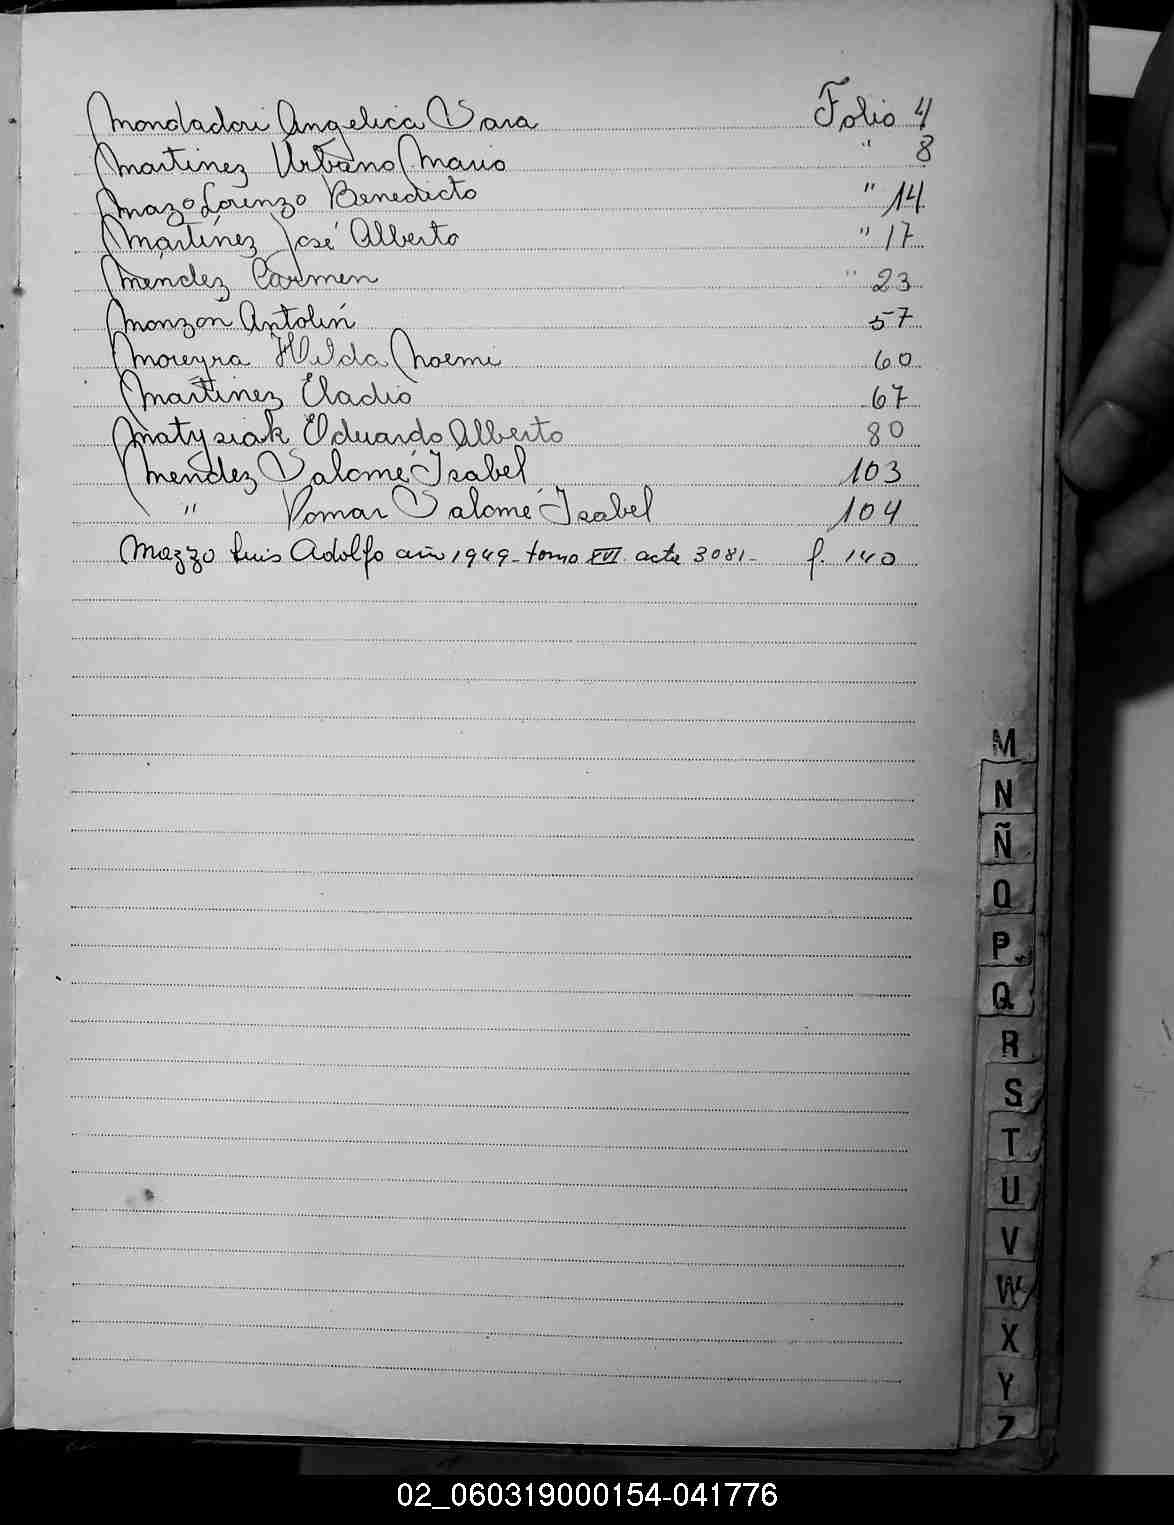 Mondadori Angelica Sara Folio 4
Martinez Urbano Mario " 8
Mazo Lorenzo Benedicto " 14
Martínez José Alberto " 17
Mendez Carmen " 23
Monzon Antolin 57
Moreyra Hilda Noemi 60
Martinez Eladio 67
Matysiak Eduardo Alberto 80
Mendez Salomé Isabel 103
" Pomar Salomé Isabel 104
Mazzo Luis Adolfo año 1949 - tomo XVI acta 3081 - f. 140
M
N
Ñ
O
P
Q
R
S
T
U
V
W
X
Y
Z
02_060319000154-041776